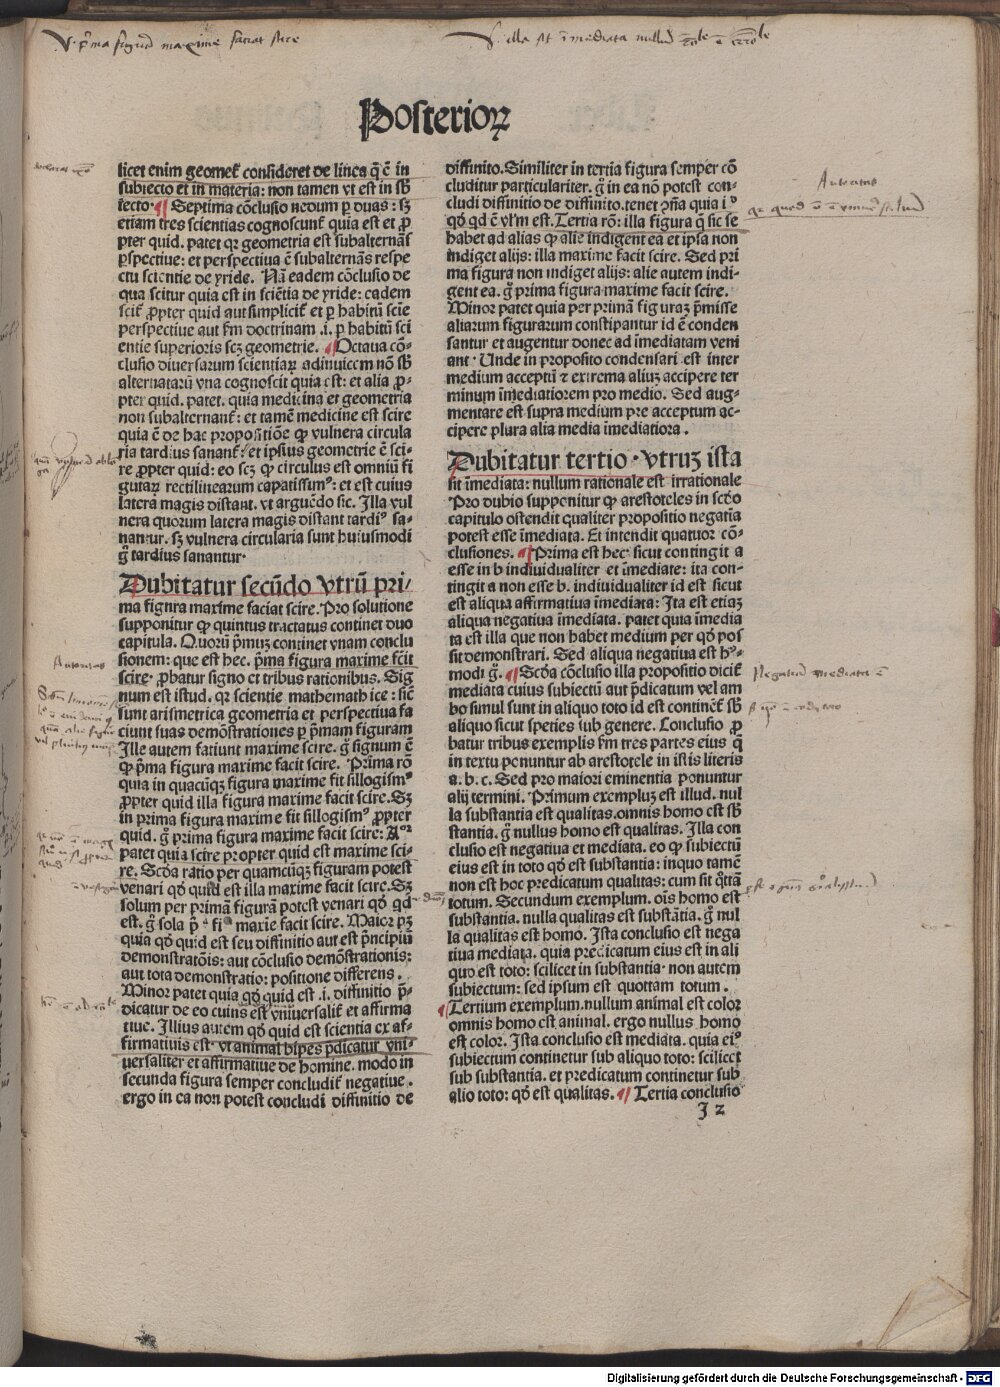 Posterioꝝ
licet enim geometᷓ consideret de linea q̄ ē in
subiecto et in materia: non tamen vt est in sb̄
iecto. ¶ Septima cōclusio nedum ꝑ duas: sꝫ
etiam tres scientias cognoscunt̄ quia est et ꝓ
pter quid. patet qꝛ geometria est subalternās
ꝑspectiue: et perspectiua ē subalternās respe
ctu scientie de yride. Nā eadem cōclusio de
qua scitur quia est in sciētia de yride: eadem
scit̄ ꝓpter quid aut simplicit̄ et ꝑ habitū scie
perspectiue aut ẜm doctrinam .i. ꝑ habitū sci
entie superioris scꝫ geometrie. ¶ Octaua cō-
clusio diuersarum scientiaꝝ adinuicem nō sb̄
alternatarū vna cognoscit quia est: et alia ꝓ-
pter quid. patet. quia medicina et geometria
non subalternant̄: et tamē medicine est scire
quia ē de hac propositiōe ꝙ vulnera circula
ria tardius sanant̄: et ipsius geometrie ē sci-
re ꝓpter quid: eo scꝫ ꝙ circulus est omniū fi
guraꝝ rectilinearum capatissimꝰ: et est cuius
latera magis distant. vt arguēdo sic. Illa vul
nera quorum latera magis distant tardiꝰ sa-
nantur. sꝫ vulnera circularia sunt huiusmodi
g̊ tardius sanantur.
Dubitatur secūdo vtrū pri/
ma figura maxime faciat scire. Pro solutione
supponitur ꝙ quintus tractatus continet duo
capitula. Quorū p̄mus continet vnam conclu
sionem: que est hec. p̄ma figura maxime fc̄it
scire. ꝓbatur signo et tribus rationibus. Sig
num est istud. qꝛ scientie mathemathice: sic̄
sunt arismetrica geometria et perspectiua fa
ciunt suas demōstrationes per p̄mam figuram
Ille autem faciunt maxime scire. g̊ signum ē
ꝙ p̄ma figura maxime facit scire. Prima rō
quia in quacūqꝫ figura maxime fit sillogismꝰ
ꝓpter quid illa figura maxime facit scire. Sꝫ
in prima figura maxime fit sillogismꝰ ꝓpter
quid. g̊ prima figura maxime facit scire: Aꝰꝛ
patet quia scire propter quid est maxime sci-
re. Scḋa ratio per quamcūqꝫ figuram potest
venari qḋ quid est illa maxime facit scire. Sꝫ
solum per primā figurā potest venari qḋ qd
est. g̊ sola pᵃ fiᵃ maxīe facit scire. Maior pꝫ
quia qḋ quid est seu diffinitio aut est p̄ncipiū
demonstratōis: aut cōclusio demōstrationis:
aut tota demonstratio: positione differens.
Minor patet quia qḋ quid est .i. diffinitio p̄-
dicatur de eo cuius est vniuersalit̄ et affirma
tiue. Illius autem qḋ quid est scientia ex af-
firmatiuis est. vt animal bipes p̄dicatur vni-
uersaliter et affirmatiue de homine. modo in
secunda figura semper concludit̄ negatiue.
ergo in ea non potest concludi diffinitio de
diffinito. Similiter in tertia figura semper cō
cluditur particulariter. g̊ in ea nō potest con-
cludi diffinitio de diffinito. tenet ↄ̄ña quia iꝰ
qḋ qd ē vl̄m est. Tertia rō: illa figura q̄ sic se
habet ad alias ꝙ alie indigent ea et ipsa non
indiget alijs: illa maxime facit scire. Sed pri
ma figura non indiget alijs: alie autem indi-
gent ea. g̊ prima figura maxime facit scire.
Minor patet quia per primā figuraꝫ p̄misse
aliarum figurarum constipantur id ē conden
santur et augentur donec ad īmediatam veni
ant. Unde in proposito condensari est inter
medium acceptū ⁊ extrema aliuꝫ accipere ter
minum īmediatiorem pro medio. Sed aug-
mentare est supra medium pre acceptum ac-
cipere plura alia media īmediatiora.
Dubitatur tertio. vtruꝫ ista
sit īmediata: nullum rationale est irrationale
Pro dubio supponitur ꝙ arestoteles in scḋo
capitulo ostendit qualiter propositio negatīa
potest esse īmediata. Et intendit quatuor cō-
clusiones. ¶ Prima est hec. sicut contingit a
esse in b indiuidualiter et īmediate: ita con-
tingit a non esse b. indiuidualiter id est sicut
est aliqua affirmatiua īmediata: Ita est etiaꝫ
aliqua negatiua īmediata. patet quia īmedia
ta est illa que non habet medium per qḋ pos
sit demonstrari. Sed aliqua negatiua est hꝰ-
modi g̊. ¶ Scḋa cōclusio illa propositio dicit̄
mediata cuius subiectū aut p̄dicatum vel am
bo simul sunt in aliquo toto id est continet̄ sb̄
aliquo sicut speties sub genere. Conclusio ꝓ
batur tribus exemplis ẜm tres partes eius q̄
in textu ponuntur ab arestotele in istis literis
a. b. c. Sed pro maiori eminentia ponuntur
alij termini. Primum exempluꝫ est illud. nul
la substantia est qualitas. omnis homo est sb̄
stantia. g̊ nullus homo est qualitas. Illa con
clusio est negatiua et mediata. eo ꝙ subiectū
eius est in toto qḋ est substantia: inquo tamē
non est hoc predicatum qualitas: cum sit q̄ttā
totum. Secundum exemplum. oīs homo est
substantia. nulla qualitas est substātia. g̊ nul
la qualitas est homo. Ista conclusio est nega
tiua mediata. quia predicatum eius est in ali
quo est toto: scilicet in substantia. non autem
subiectum: sed ipsum est quottam totum.
¶ Tertium exemplum. nullum animal est color
omnis homo est animal. ergo nullus homo
est color. Ista conclusio est mediata. quia eiꝰ
subiectum continetur sub aliquo toto: scilicet
sub substantia. et predicatum continetur sub
alio toto: qḋ est qualitas. ¶ Tertia conclusio
I 2
Digitalisierung gefördert durch die Deutsche Forschungsgemeinschaft - DFG